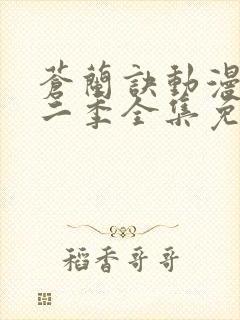 蒼蘭訣動漫
二季全集免
稻香哥哥